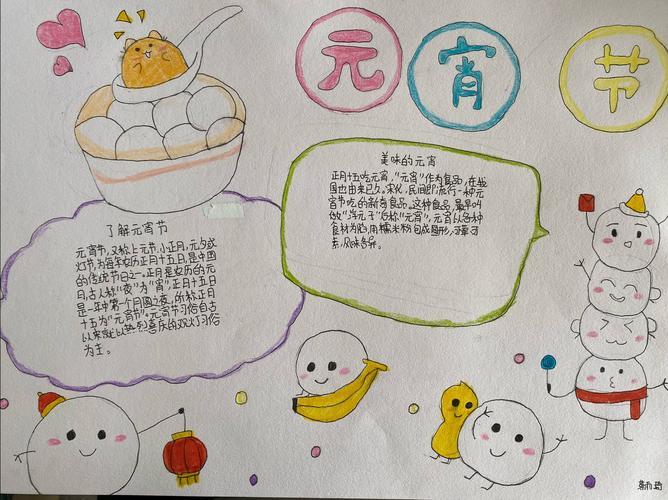 元宵节
美味的元宵
正月十五吃元宵,“元宵”作为食品,在我
国也由来已久。宋代,民间即流行一种元
宵节吃的新奇食品。这种食品,最早叫
做“浮元子”后称“元宵”,元宵以各种
食材为馅,用糯米粉包成圆形,可荤可
素,风味各异。
了解元宵节
元宵节,又称上元节,小正月,元夕或
灯节,为每年农历正月十五日,是中国
的传统节日之一。正月是农历的元
月,古人称“夜”为“宵”,正月十五日
是一年中第一个月圆之夜,所称正月
十五为“元宵节”。元宵节习俗自古
以来就以热烈喜庆的观灯习俗
为主。